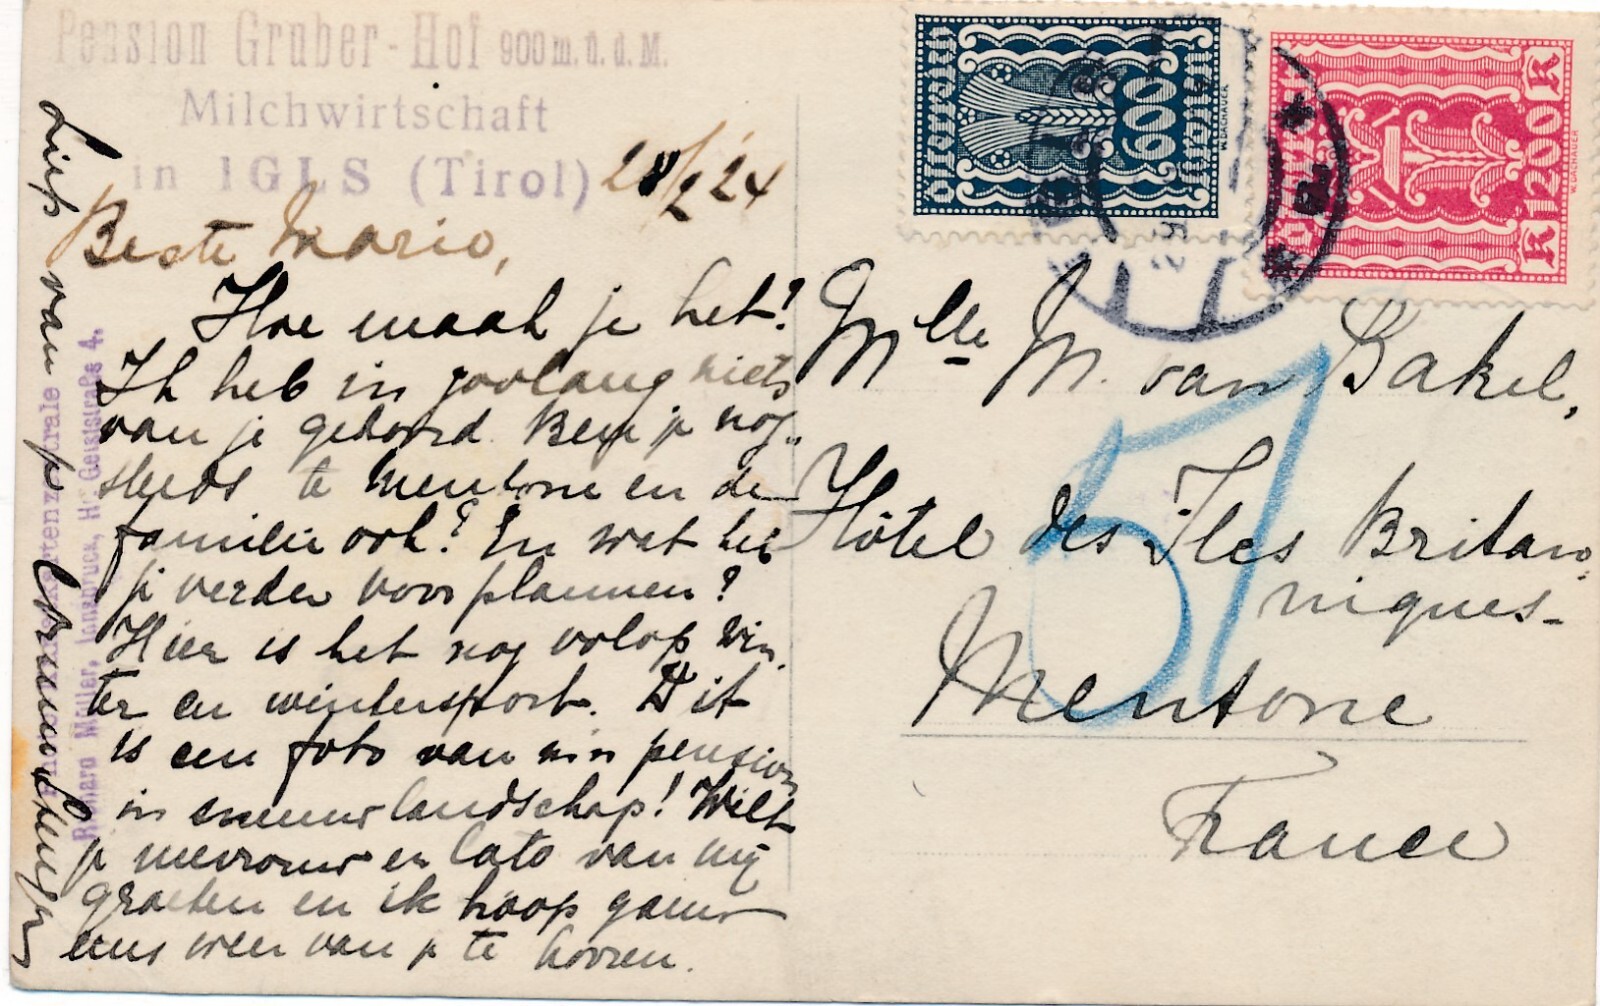 Pension Gruber-Hof 900 m. ü. d. M.
Milchwirtschaft
in IGLS (Tirol)
28/2 24
Beste Marie,
Hoe maak je het?
Ik heb in zoolang niets
van je gehoord. Ben je nog
steeds te Mentone en de
familie ook? En wat heb
je verder voor plannen?
Hier is het nog volop win-
ter en wintersport. Dit
is een foto van m'n pension
in sneeuwlandschap! Wilt
je mevrouw en Cato van mij
groeten en ik hoop gauw
eens weer van je te hooren.
Liefs van je
Richard Müller, Innsbruck, H. Geiststraße 4.
Österreich
600
Kronen
W. DACHAUER
K 1200 K
W. DACHAUER
Mlle M. van Bakel,
Hôtel des Iles Britan-
niques-
Mentone
France
57